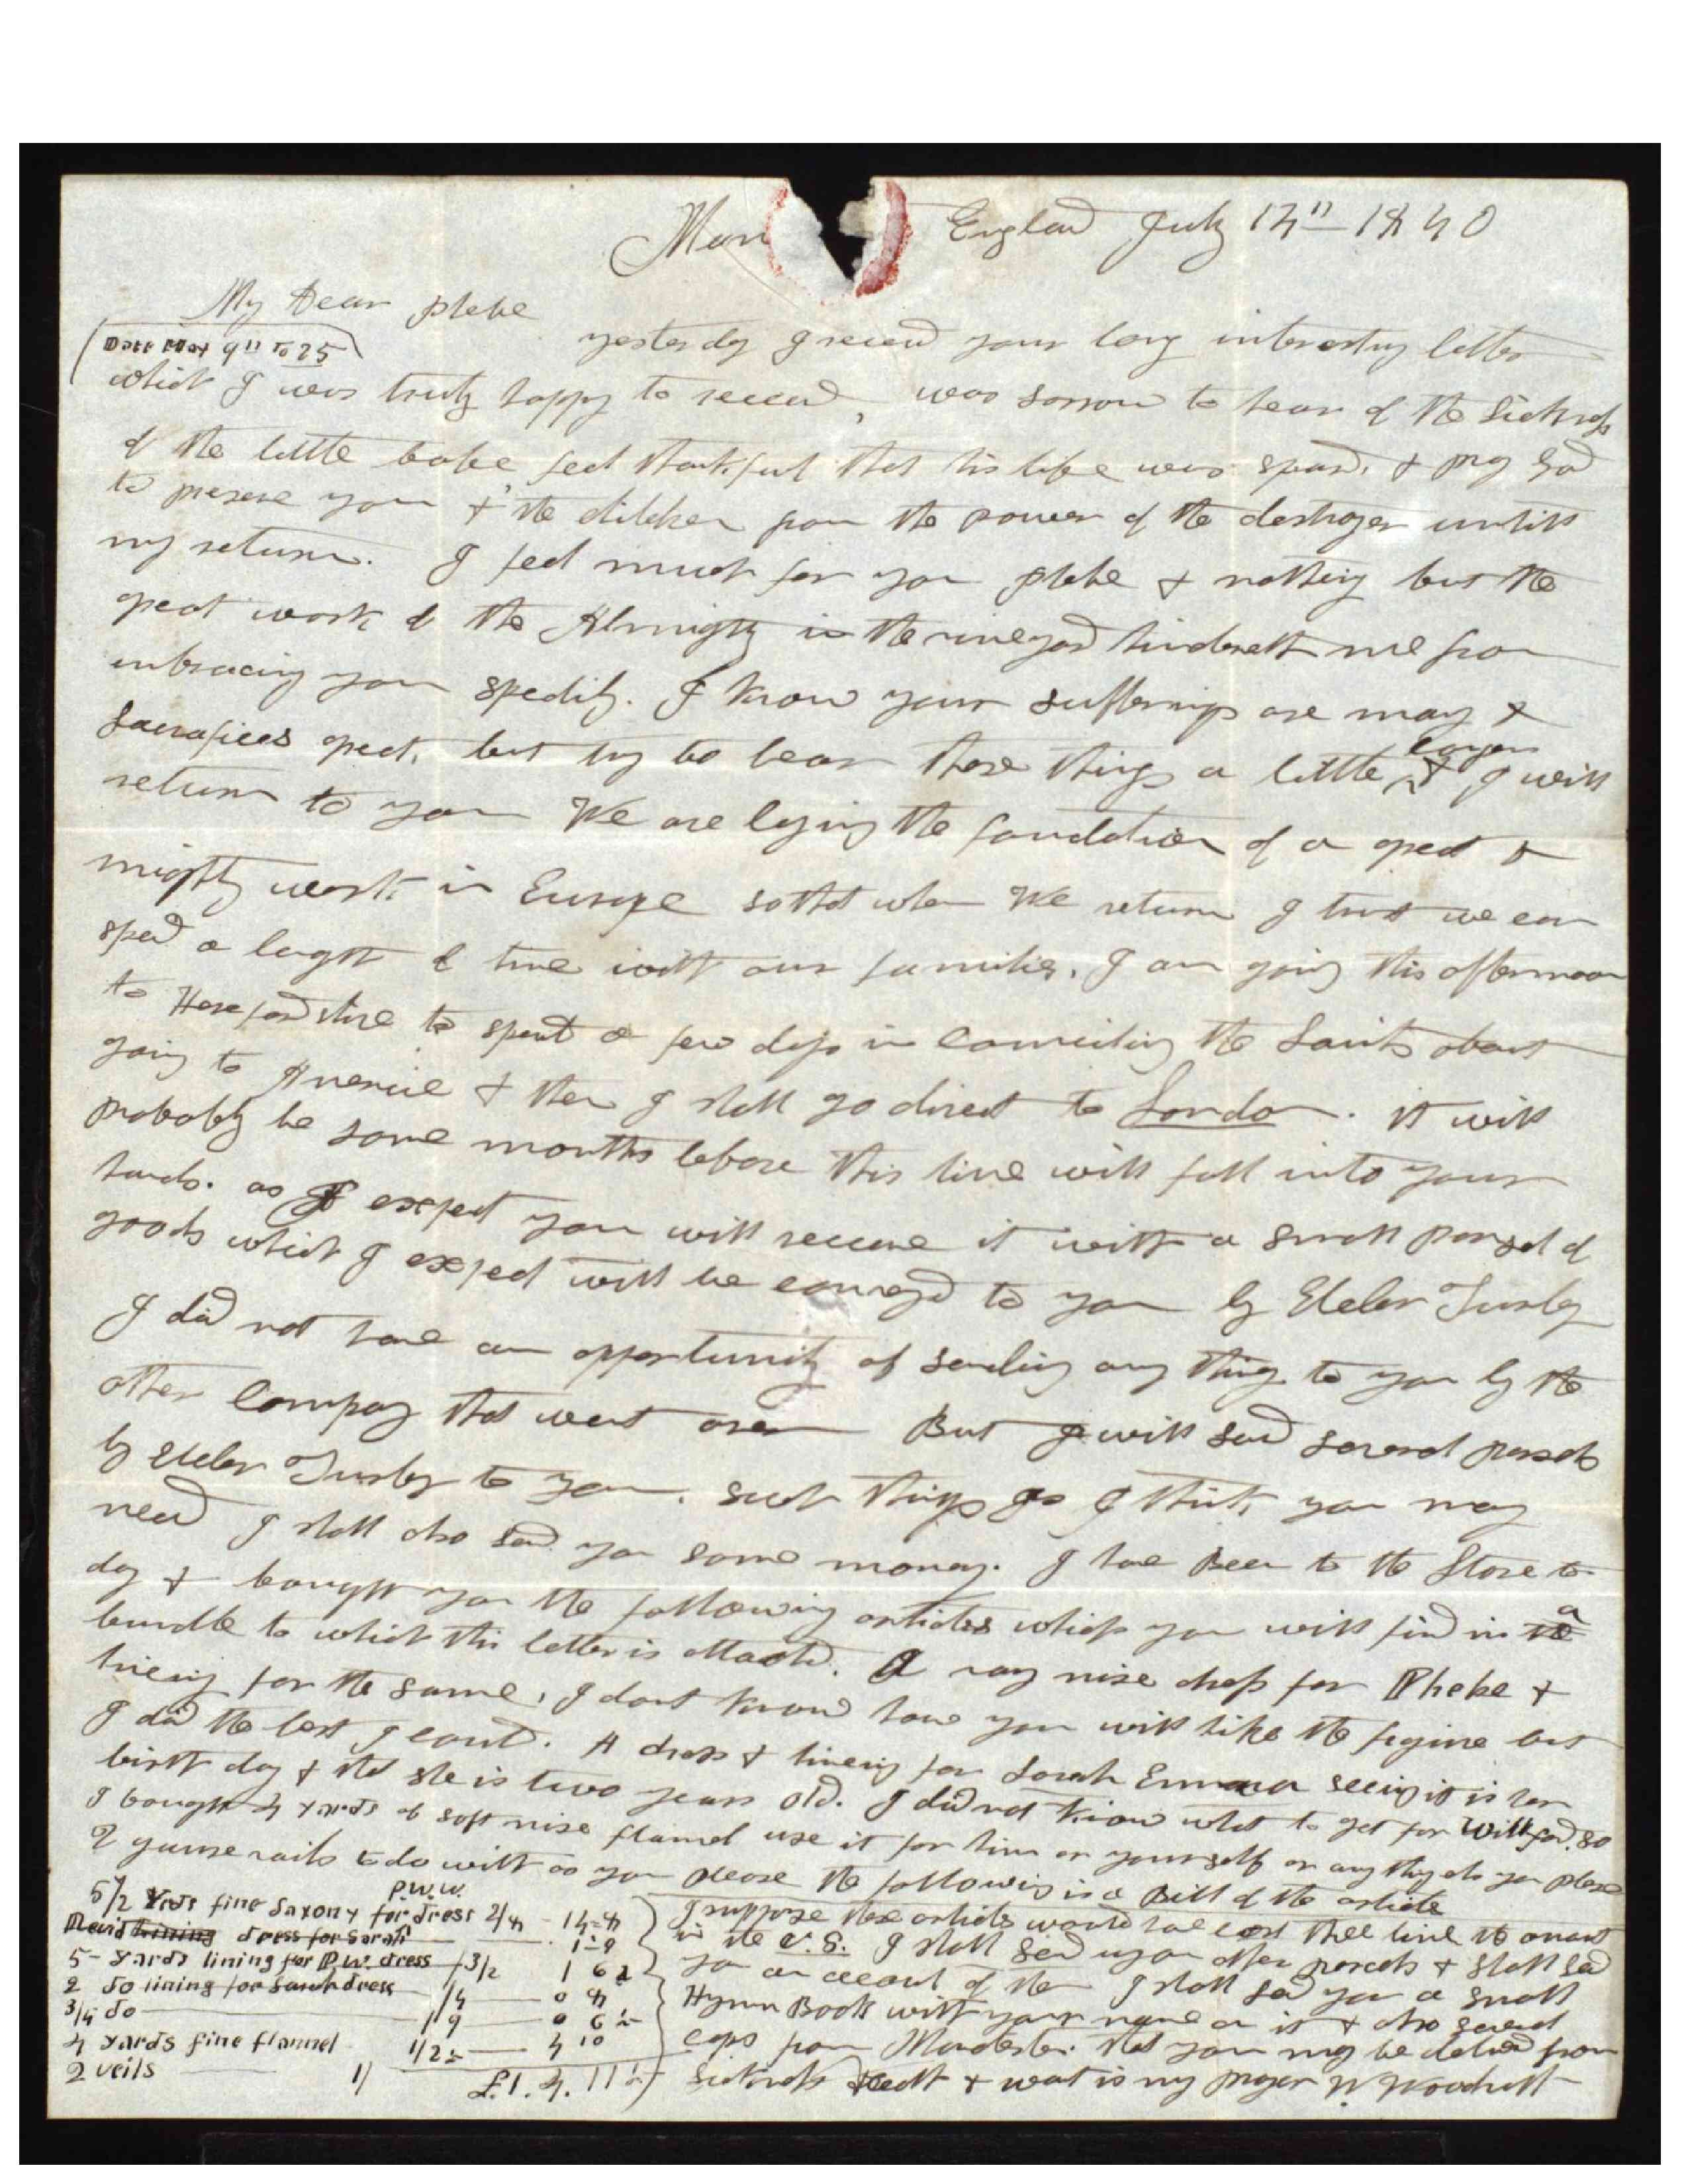 Man England July 14th 1840
My Dear Phebe
Date May 9th to 25
yesterday I receivd your long interesting letter
which I was truly happy to receive, was sorrow to hear of the sickness
of the little babe feel thankful that his life was spared. & pray God
to preserve you & the children from the power of the destroyer untill
my return. I feel much for you Phebe & nothing but the
great work of the Almighty in the vineyard hindereth me from
imbracing you spedily. I know your sufferings are many &
Sacrafices great, but try to bear these things a little longer & I will
return to you We are laying the foundation of a great &
mighty work in Europe so that when We return I trust we can
spend a length of time with our families. I am going this afternoon
to Herefordshire to spend a few days in Counciling the Saints about
going to America & then I shall go direct to London. it will
probably be some months before this line will fall into your
hands. as I expect you will receive it with a small parsel of
goods which I expect will be conveyed to you by Elder Turley
I did not have an opportunity of sending any thing to you by the
other Company that went over But I will send several parsels
by Elder Turley to you. such things as I think you may
need I shall also send you some money. I have Been to the Store to
day & bought you the following articles which you will find in the a
bundle to which this letter is attached. A vary nise dress for Phebe &
lineing for the same, I dont know how you will like the figure but
I did the best I could. A dress & lineing for Sarah Emma seeing it is her
birth day & that she is two years old. I did not know what to get for Willford. so
I bought 4 yards of soft nise flannel use it for him or yourself or any thing els you please
2 gause vails to do with as you please the following is a Bill of the article
5 1/2 Yards fine Saxony for dress P.W.W. 2/4 - 14=4
Plaid lining dress for Sarah 1=9
5 - Yards lining for P.W. dress /3 1/2 1 6
2 do lining for Sarah dress /4 0 4
3/4 do /9 0 6 1/2
4 yards fine flannel 1/2 1/2 4 10
2 veils 1/ £1. 4. 11 1/2
I suppose these articles would have cost three time the amount
in the U.S. I shall send you other parcels & shall send
you an account of them I shall send you a small
Hymn Book with your name on it & also several
cops from Manchester. That you may be delivered from
Sickness death & want is my prayer W. Woodruff